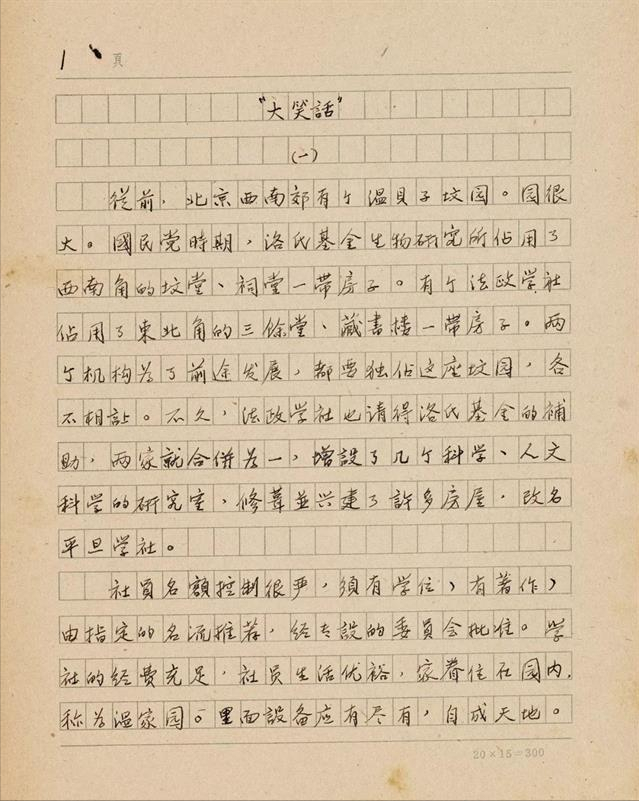 1 頁
“大笑話”
(一)
從前，北京西南郊有个温貝子坟园。园很
大。國民党時期，洛氏基金生物研究所佔用了
西南角的坟堂、祠堂一帶房子。有个法政学社
佔用了東北角的三餘堂、藏書楼一帶房子。两
个机构为了前途发展，都要独佔这座坟园，各
不相讓。不久，法政学社也请得洛氏基金的補
助，两家就合併为一，增設了几个科学、人文
科学的研究室，修葺並兴建了許多房屋，改名
平旦学社。
社員名額控制很严，須有学位，有著作，
由指定的名流推荐，经专設的委員会批准。学
社的经費充足，社员生活优裕，家眷住在園内，
称为温家园。里面設备应有尽有，自成天地。
20×15=300